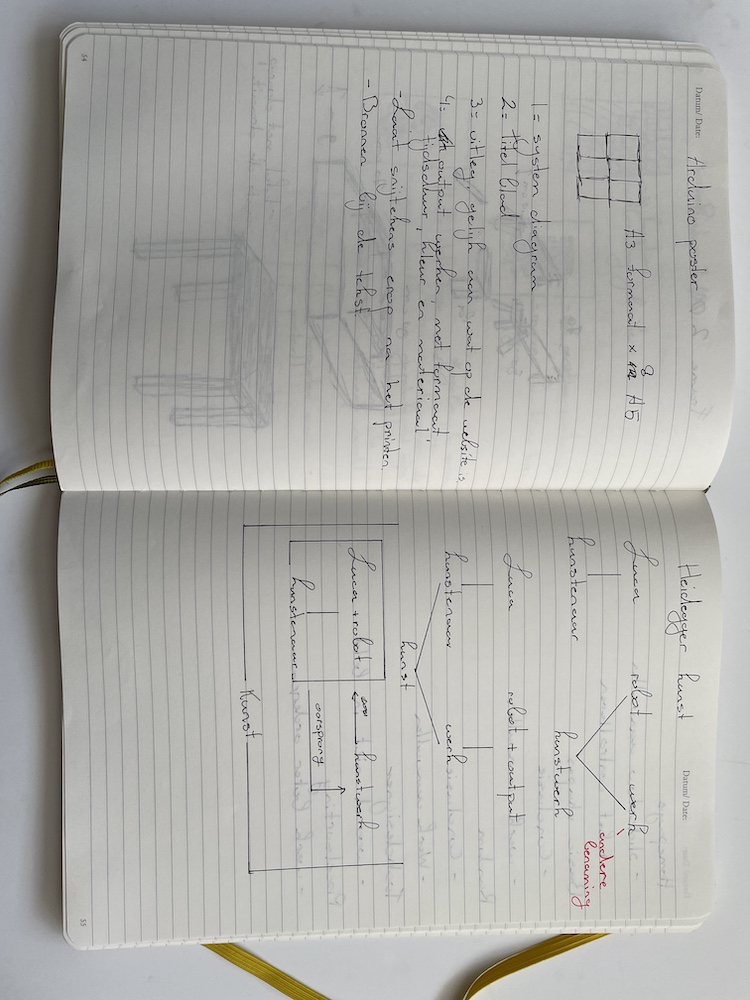 Datum/ Date: Arduino poster
A3 formaat x 8 A5
1= system diagram
2= titel blad
3= uitleg, gelijk aan wat op de website is.
4= output werken, met formaat,
tijdsduur, kleur en materiaal
-Laat snijtekens erop na het printen.
- Bronnen bij de tekst.
54
Heidegger kunst Datum/ Date:
Luca robot werk
andere
benaming
kunstenaar
kunstwerk
Luca robot + output
kunstenaar werk
kunst
Luca + robot kunstwerk
oorsprong
kunstenaar
Kunst
55